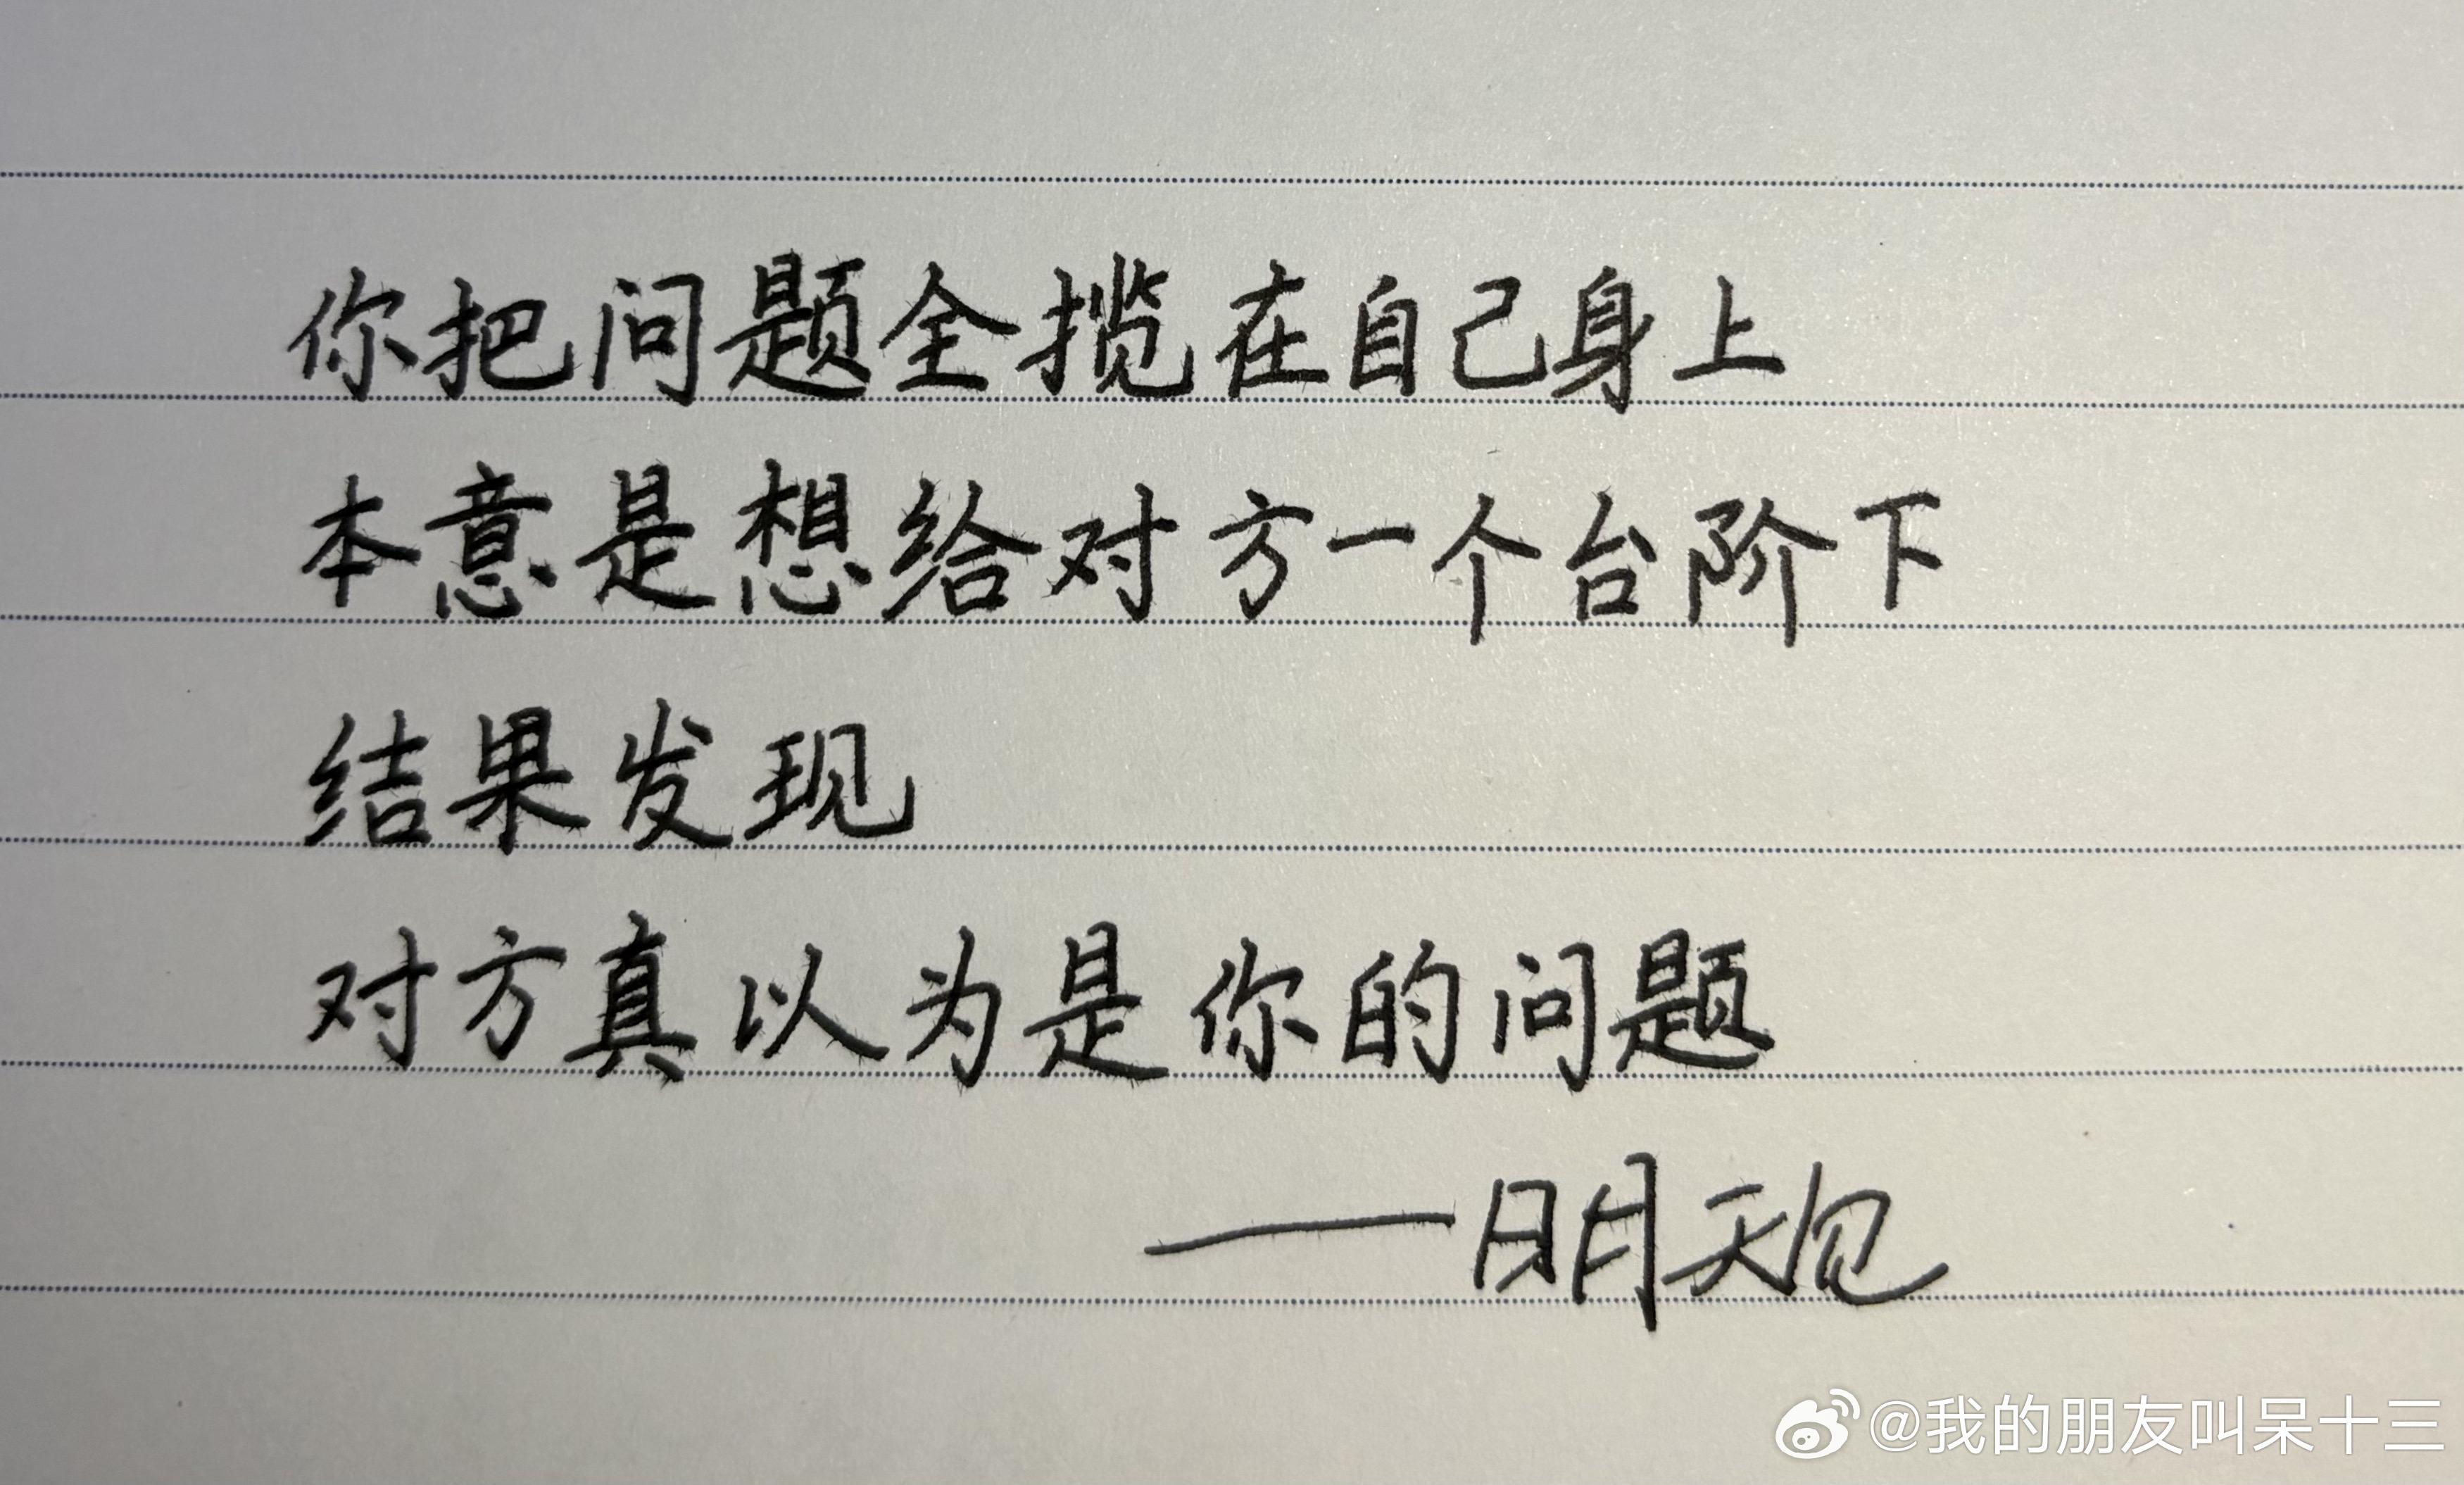 你把问题全揽在自己身上
本意是想给对方一个台阶下
结果发现
对方真以为是你的问题
——明天见
@我的朋友叫呆十三